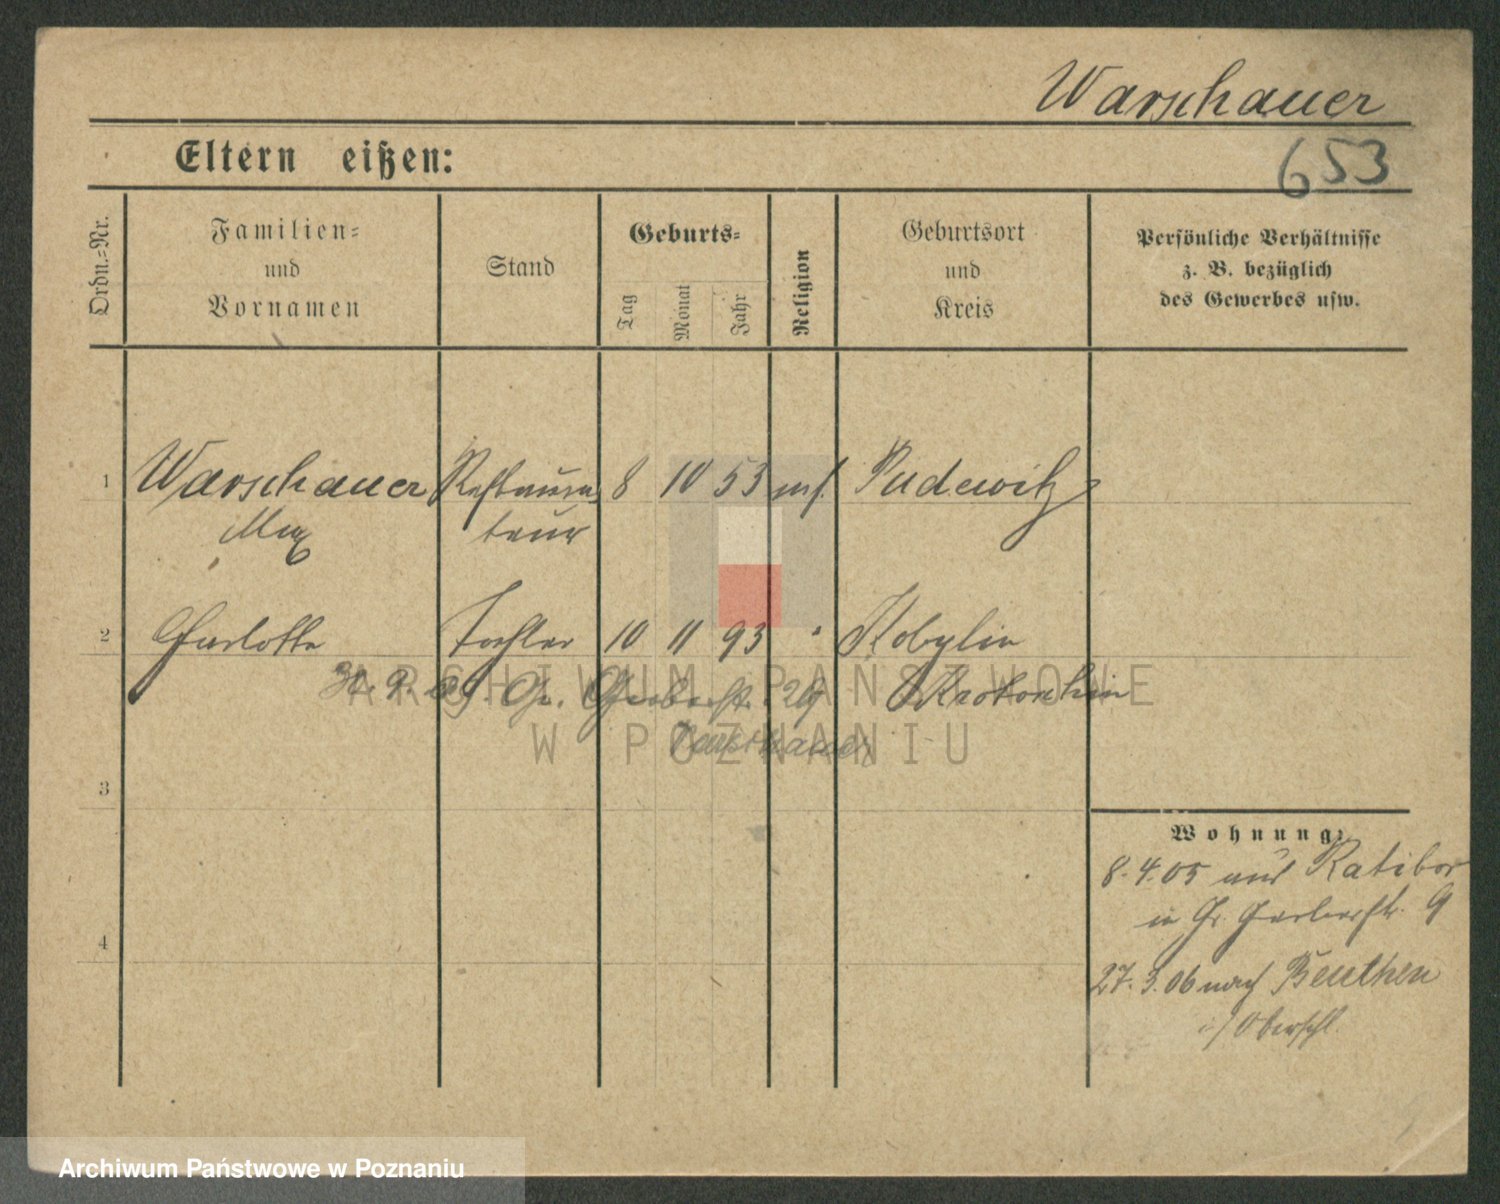 Warschauer
653
Eltern eißen:
Ordn.-Nr.
Familien-
und
Vornamen
Stand
Geburts-
Tag
Monat
Jahr
Religion
Geburtsort
und
Kreis
Persönliche Verhältnisse
z. B. bezüglich
des Gewerbes usw.
1 Warschauer Restaura- 8 10 53 mos. Pudewitz
Max teur
2 Charlotte Tochter 10 11 93 " Kobylin
Krotoschin
30. 9. Gr. Gerberstr. 29
3
4
Wohnung:
8. 4. 05 aus Ratibor
in Gr. Gerberstr. 9
27. 3. 06 nach Beuthen
i/Oberschl.
ARCHIWUM PAŃSTWOWE
W POZNANIU
Archiwum Państwowe w Poznaniu